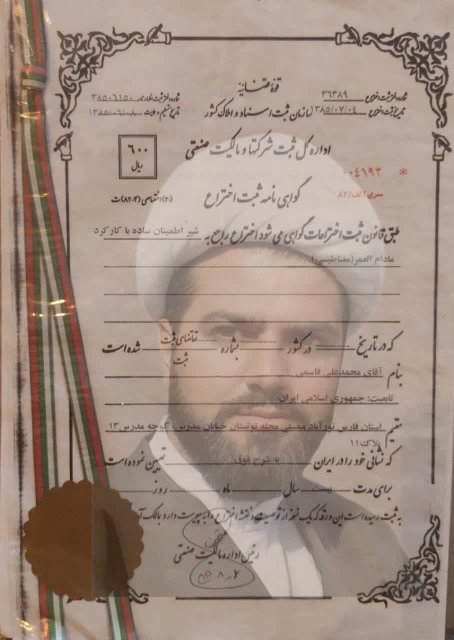 قوه قضائیه
شماره دفتر ثبت اختراع ۳۶۳۸۹
تاریخ ثبت اختراع ۱۳۸۵/۰۷/۰۴
سازمان ثبت اسناد و املاک کشور
اداره کل ثبت شرکتها و مالکیت صنعتی
۶۰۰
ریال
* ۰۰۴۱۹۲
سری الف/۸۲
گواهی نامه ثبت اختراع
طبق قانون ثبت اختراعات گواهی می شود اختراع راجع به شیر اطمینان ساده با کارکرد
مادام العمر(مغناطیسی).
که در تاریخ در کشور بشماره تقاضای ثبت شده است
ثبت
بنام آقای محمدعلی قاسمی
تابعیت: جمهوری اسلامی ایران
مقیم استان فارس نورآباد ممسنی محله خیابان مدرس کوچه مدرس ۱۳
پلاک ۱۱
که نشانی خود را در ایران به شرح فوق تعیین نموده است
برای مدت بیست سال ماه روز
به ثبت رسیده است این ورقه که یک نسخه از توصیف و نقشه اختراع را به پیوست دارد به مالک آن
رئیس اداره مالکیت صنعتی